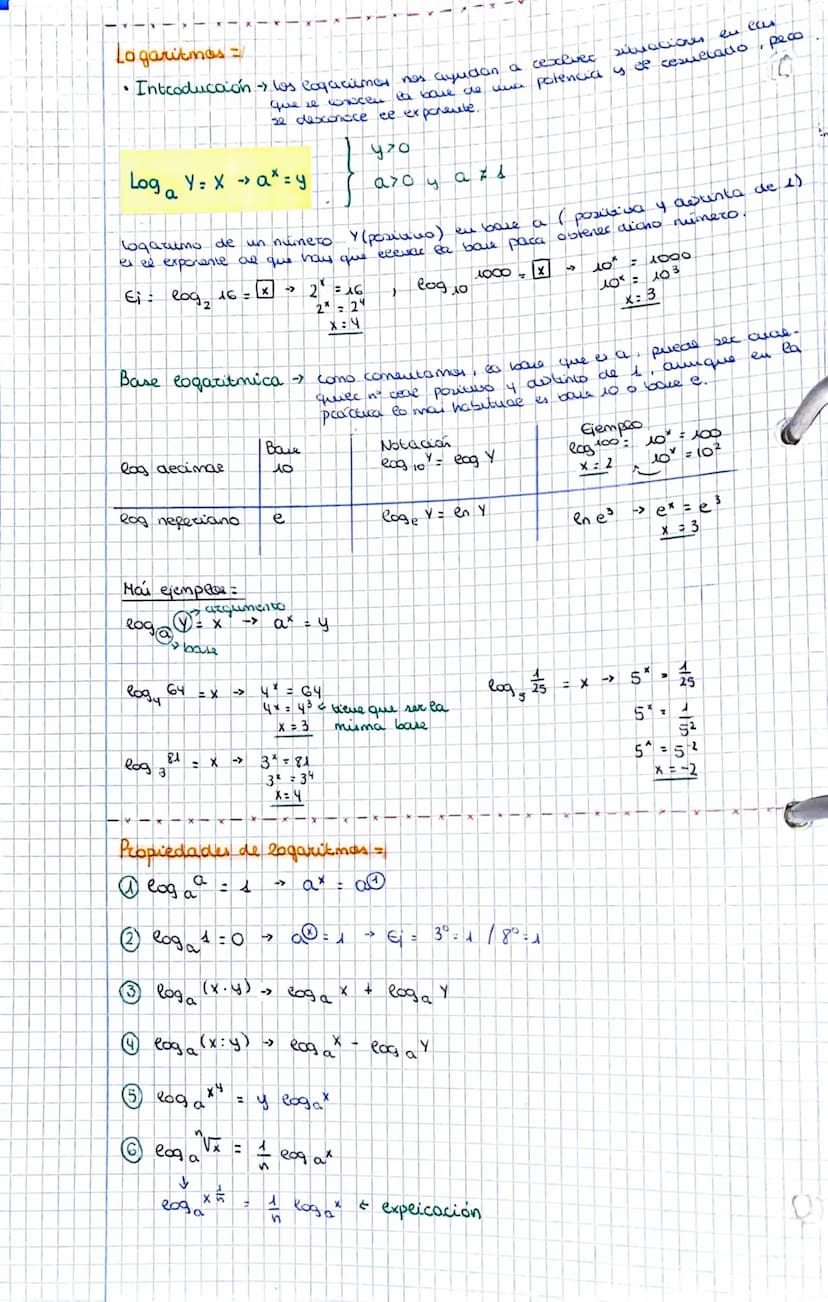 Logaritmos =
· Introducción → Los logaritmos nos ayudan a resolver situaciones en las
que se conocen la base de una potencia y el resultado, pero
se desconoce el exponente.
Log_a Y = X → a^x = y { y > 0
a > 0 y a ≠ 1
Logaritmo de un número Y (positivo) en base a (positiva y distinta de 1)
es el exponente al que hay que elevar la base para obtener dicho número.
Ej: log_2 16 = x → 2^x = 16 , log_10 1000 = x → 10^x = 1000
2^x = 2^4 10^x = 10^3
x = 4 x = 3
Base logarítmica → como comentamos, la base que es a, puede ser cual-
quier nº real positivo y distinto de 1, aunque en la
práctica lo más habitual es base 10 o base e.
Base Notación Ejemplo
log decimal 10 log_10 Y = log Y log 100 = 10^x = 100
x = 2 10^x = 10^2
log neperiano e log_e Y = ln Y ln e^3 → e^x = e^3
x = 3
Más ejemplos =
→ argumento
log_a Y = x → a^x = y
→ base
log_4 64 = x → 4^x = 64 log_5 1/25 = x → 5^x = 1/25
4^x = 4^3 ← tiene que ser la 5^x = 1/5^2
x = 3 misma base 5^x = 5^-2
log_3 81 = x → 3^x = 81 x = -2
3^x = 3^4
x = 4
Propiedades de logaritmos =
① log_a a = 1 → a^x = a^1
② log_a 1 = 0 → a^x = 1 → Ej = 3^0 = 1 / 8^0 = 1
③ log_a (x · y) → log_a x + log_a Y
④ log_a (x : y) → log_a x - log_a Y
⑤ log_a x^y = y log_a x
⑥ log_a ⁿ√x = 1/n log_a x
↓
log_a x^1/n = 1/n log_a x ← explicación